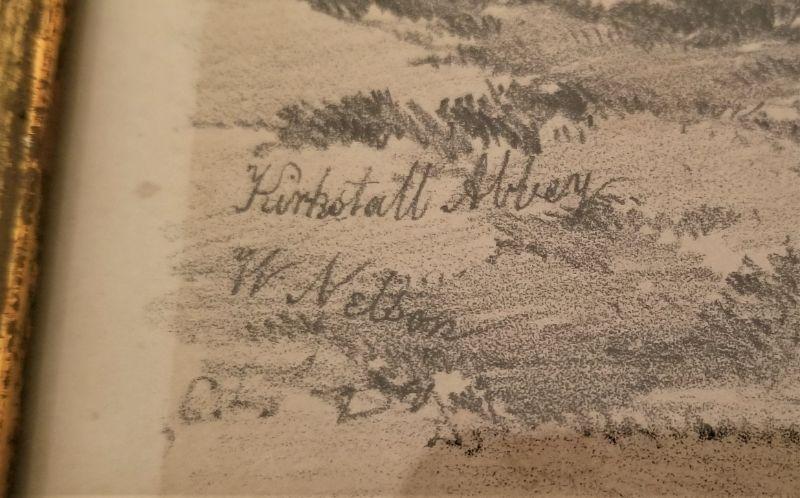 Kirkstall Abbey
W Nelson